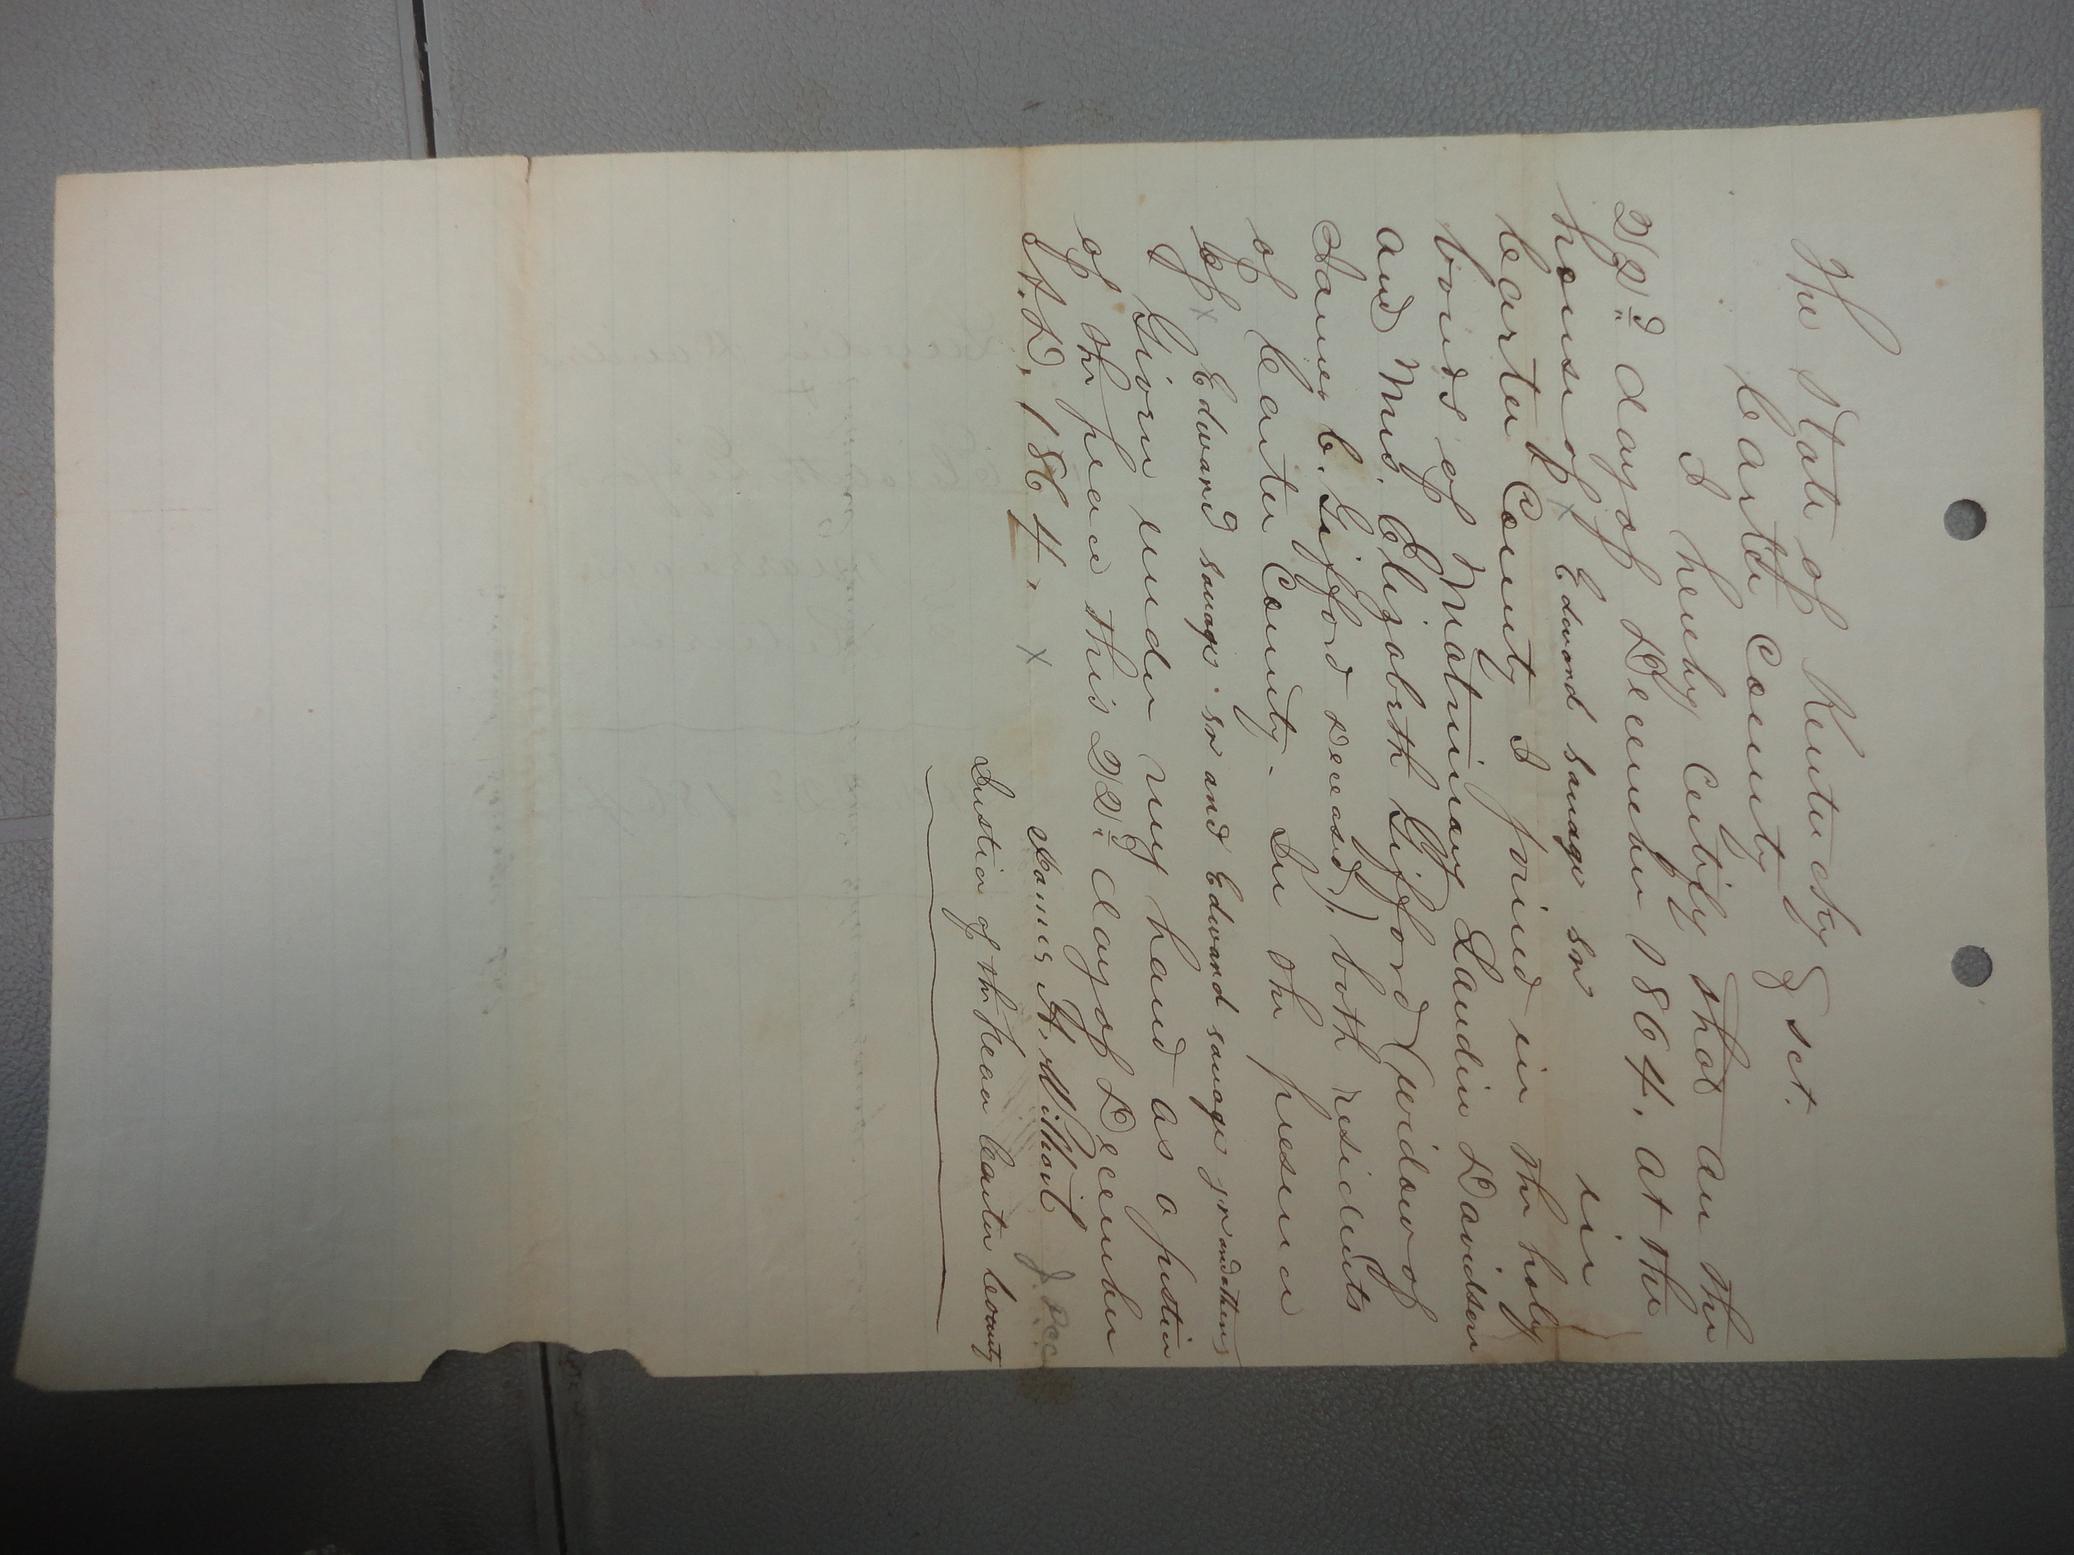 The State of Kentucky } sct.
Carter County
I hereby Certify that on the
22d day of December 1864, at the
house of x Edward Savage Sr in
Carter County I joined in the holy
bonds of Matrimony Landin Davidson
and Mrs. Elizabeth Gifford (widow of
James C. Gifford deceased), both residents
of Carter County. In the presence
of x Edward Savage Sr and Edward Savage Jr and others
Given under my hand as a justice
of the peace this 22d day of December
A.D. 1864. x
James A.
J. P.C.C.
Justice of the Peace Carter County